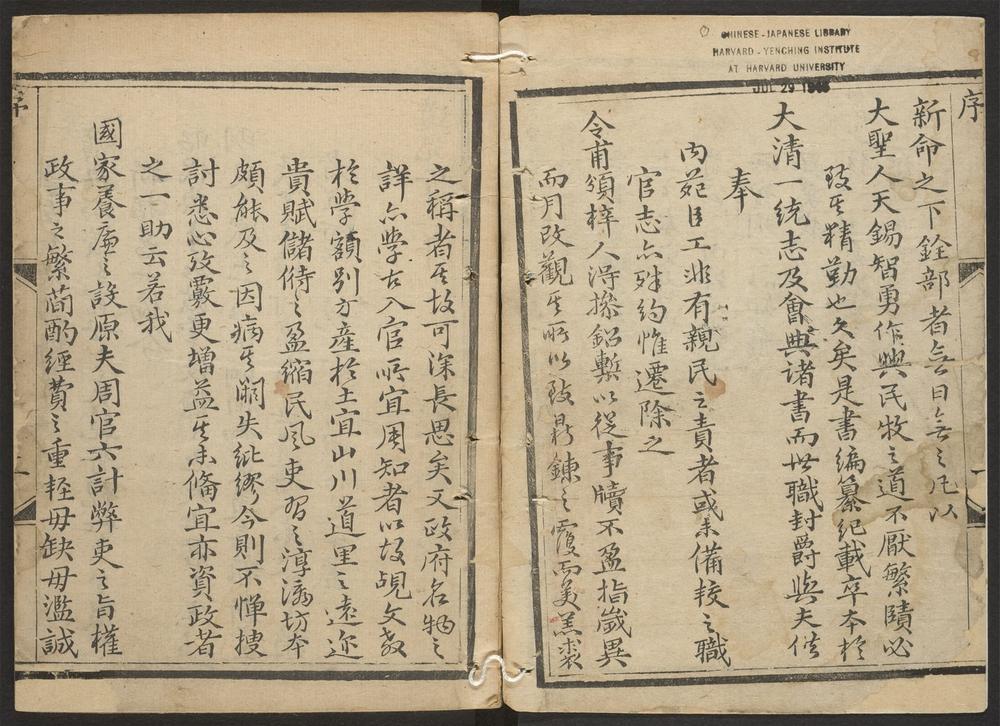 CHINESE - JAPANESE LIBRARY
HARVARD - YENCHING INSTITUTE
AT HARVARD UNIVERSITY
JUL 29 19
序
新命之下銓部者無日無之凡以
大聖人天錫智勇作興民牧之道不厭繁賾必
致其精勤也久矣是書編纂紀載卒本於
大清一統志及會典諸書而世職封爵與夫供
奉
內苑臣工非有親民之責者或未備較之職
官志亦殊約惟遷除之
令甫頒梓人得摻鉛槧以從事牘不盈指歲異
而月改觀其所以致鼎餗之覆而美羔裘
之稱者其故可深長思矣又政府名物之
詳亦學古入官所宜周知者以故覘文教
於學額別方產於土宜山川道里之遠近
貴賦儲偫之盈縮民風吏習之淳澆坊本
頗能及之因病其闕失紕繆今則不憚搜
討悉心攷覈更增益其未備宜亦資政者
之一助云若我
國家養廉之設原夫周官六計弊吏之旨權
政事之繁簡酌經費之重輕毋缺毋濫誠
序